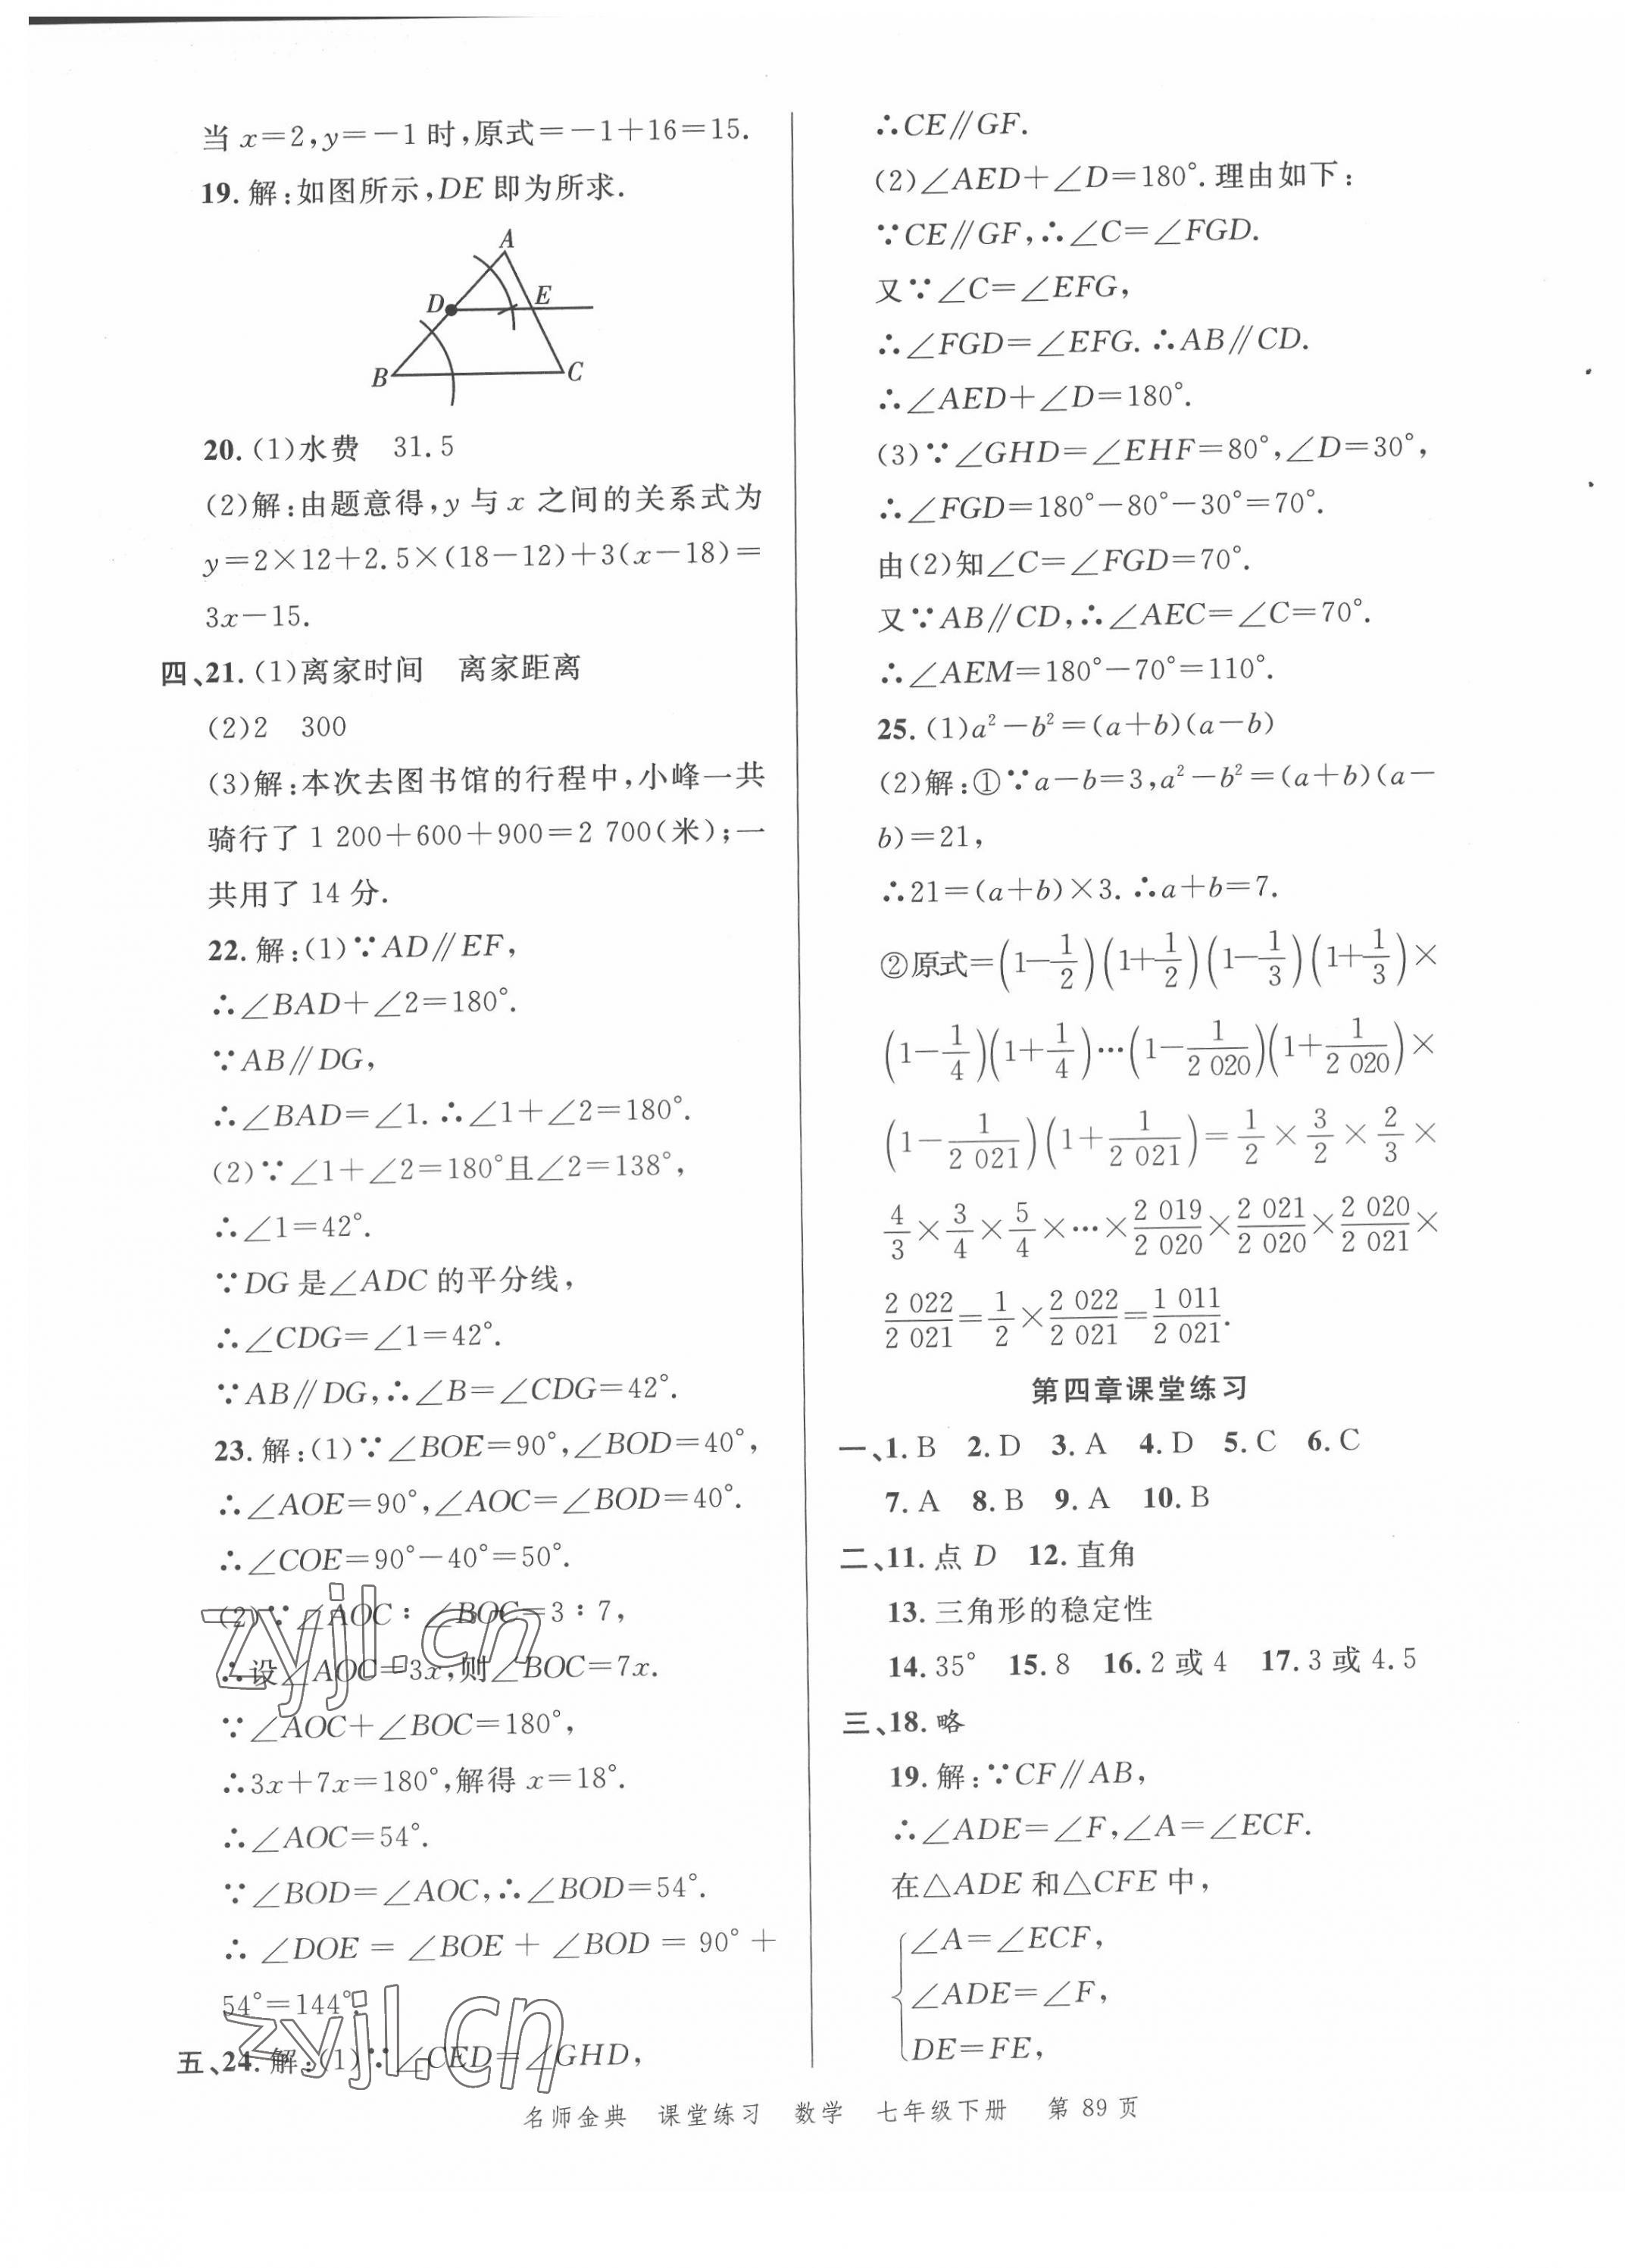 当 x=2,y=-1 时,原式=-1+16=15.
19. 解:如图所示,DE 即为所求.
A
D
E
B
C
20. (1)水费 31.5
(2)解:由题意得,y 与 x 之间的关系式为
y=2×12+2.5×(18-12)+3(x-18)=
3x-15.
四、21. (1)离家时间 离家距离
(2)2 300
(3)解:本次去图书馆的行程中,小峰一共
骑行了 1 200+600+900=2 700(米);一
共用了 14 分.
22. 解:(1)∵AD∥EF,
∴∠BAD+∠2=180°.
∵AB∥DG,
∴∠BAD=∠1. ∴∠1+∠2=180°.
(2)∵∠1+∠2=180°且∠2=138°,
∴∠1=42°.
∵DG 是∠ADC 的平分线,
∴∠CDG=∠1=42°.
∵AB∥DG,∴∠B=∠CDG=42°.
23. 解:(1)∵∠BOE=90°,∠BOD=40°,
∴∠AOE=90°,∠AOC=∠BOD=40°.
∴∠COE=90°-40°=50°.
(2)∵∠AOC∶∠BOC=3∶7,
∴设∠AOC=3x,则∠BOC=7x.
∵∠AOC+∠BOC=180°,
∴3x+7x=180°,解得 x=18°.
∴∠AOC=54°.
∵∠BOD=∠AOC,∴∠BOD=54°.
∴∠DOE=∠BOE+∠BOD=90°+
54°=144°.
五、24. 解:(1)∵∠CED=∠GHD,
∴CE∥GF.
(2)∠AED+∠D=180°. 理由如下:
∵CE∥GF,∴∠C=∠FGD.
又∵∠C=∠EFG,
∴∠FGD=∠EFG. ∴AB∥CD.
∴∠AED+∠D=180°.
(3)∵∠GHD=∠EHF=80°,∠D=30°,
∴∠FGD=180°-80°-30°=70°.
由(2)知∠C=∠FGD=70°.
又∵AB∥CD,∴∠AEC=∠C=70°.
∴∠AEM=180°-70°=110°.
25. (1)a²-b²=(a+b)(a-b)
(2)解:①∵a-b=3,a²-b²=(a+b)(a-
b)=21,
∴21=(a+b)×3. ∴a+b=7.
②原式=(1-1/2)(1+1/2)(1-1/3)(1+1/3)×
(1-1/4)(1+1/4)…(1-1/2 020)(1+1/2 020)×
(1-1/2 021)(1+1/2 021)=1/2×3/2×2/3×
4/3×3/4×5/4×…×2 019/2 020×2 021/2 020×2 020/2 021×
2 022/2 021=1/2×2 022/2 021=1 011/2 021.
第四章课堂练习
一、1. B 2. D 3. A 4. D 5. C 6. C
7. A 8. B 9. A 10. B
二、11. 点 D 12. 直角
13. 三角形的稳定性
14. 35° 15. 8 16. 2 或 4 17. 3 或 4.5
三、18. 略
19. 解:∵CF∥AB,
∴∠ADE=∠F,∠A=∠ECF.
在△ADE 和△CFE 中,
∠A=∠ECF,
∠ADE=∠F,
DE=FE,
zyjl.cn
zyjl.cn
名师金典 课堂练习 数学 七年级下册 第 89 页